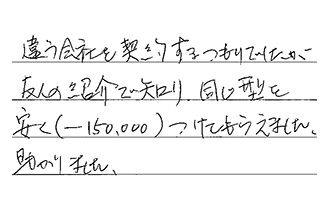 違う会社を契約するつもりでしたが
友人の紹介で知り、同じ型を
安く(－150,000)つけてもらえました。
助かりました。